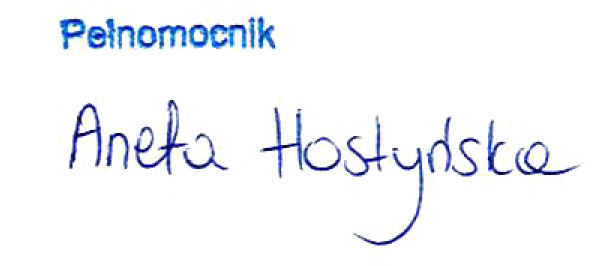 Pełnomocnik
Aneta Hostyńska